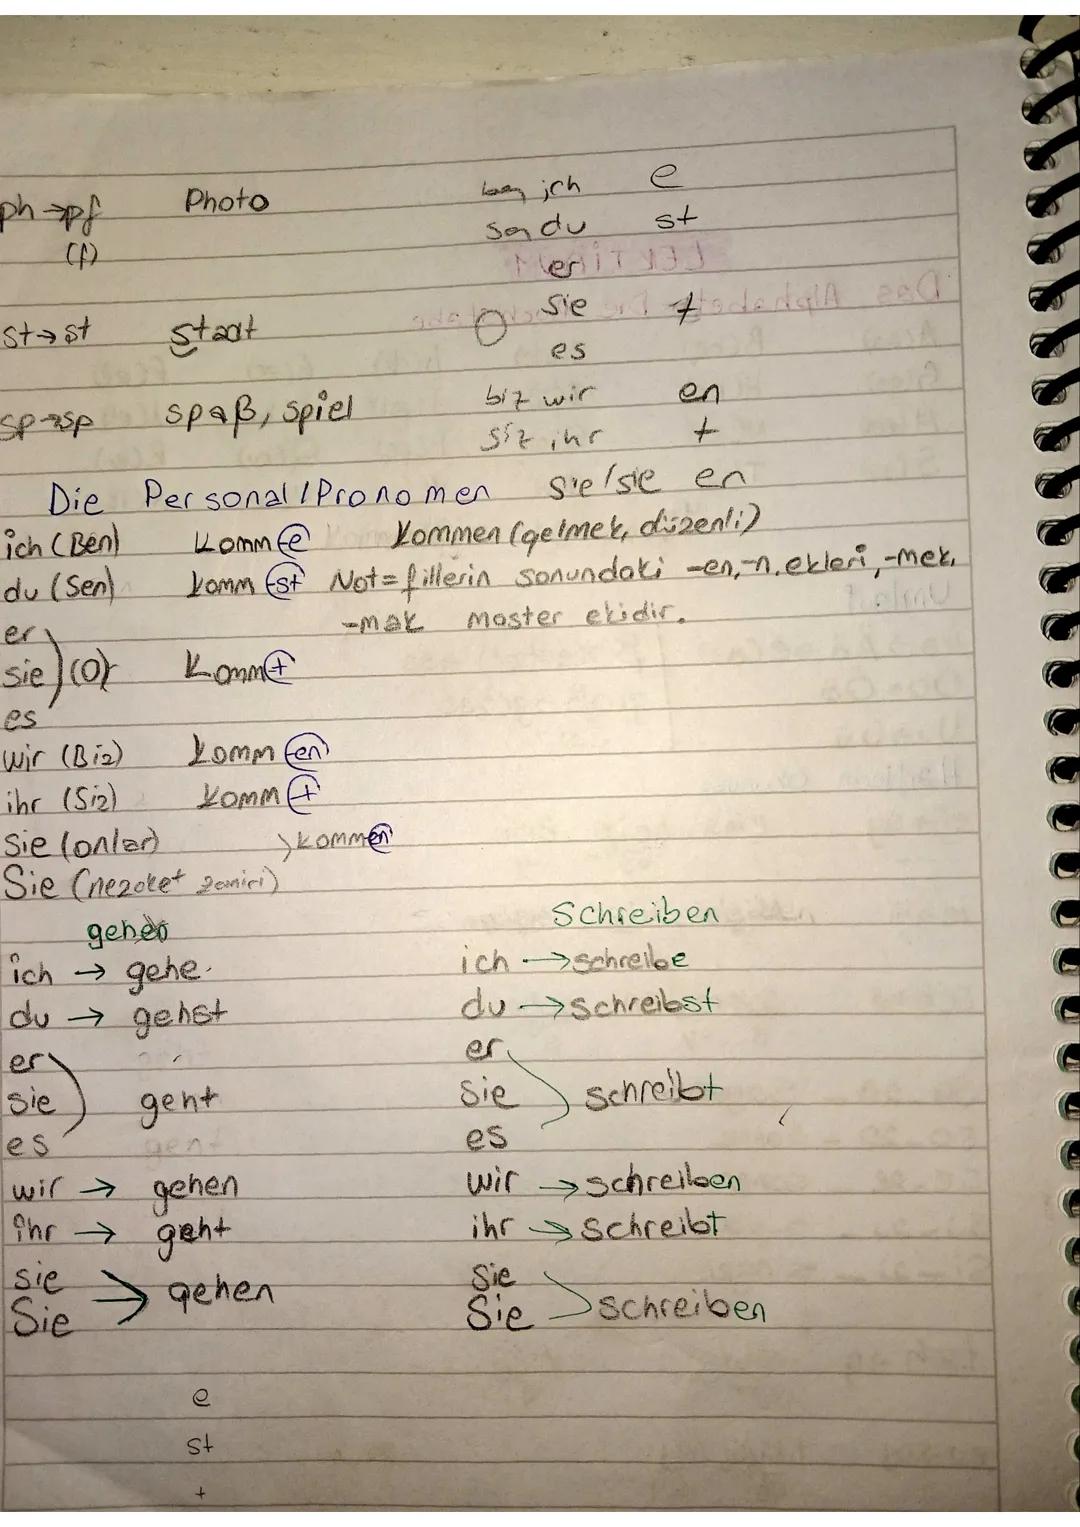 ph → pf Photo
(f)
st → st staat
sp → sp spaß, spiel
ben ich e
sen du st
er
O sie t
es
biz wir en
siz ihr t
sie/sie en
Die Personal / Pronomen
ich (Ben) komm-e kommen (gelmek, düzenli)
du (Sen) komm-st Not= fillerin sonundaki -en, -n. ekleri, -mek,
-mak master ekidir.
er
sie (O) komm-t
es
wir (Biz) komm-en
ihr (Siz) komm-t
Sie (onlar) kommen
Sie (nezaket zamiri)
gehen
ich → gehe
du → gehst
er
sie geht
es
wir → gehen
ihr → geht
sie
Sie → gehen
Schreiben
ich → schreibe
du → schreibst
er
sie schreibt
es
wir → schreiben
ihr → schreibt
Sie
Sie schreiben
e
st
t